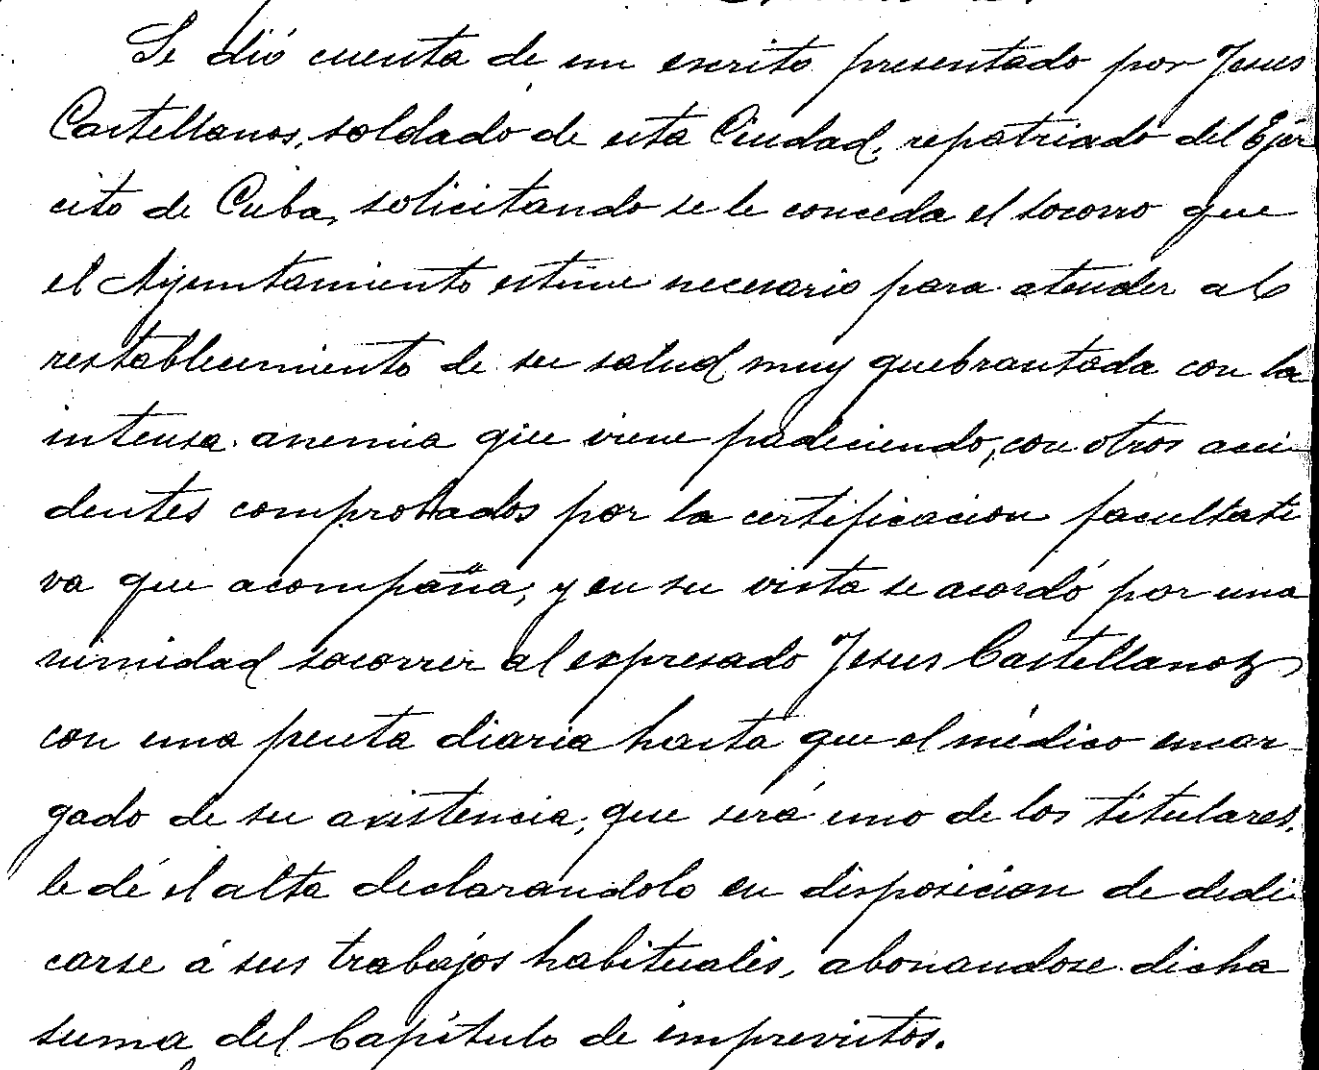 Se dió cuenta de un escrito presentado por Jesus
Castellanos, soldado de esta Ciudad, repatriado del Ejér
cito de Cuba, solicitando se le conceda el socorro que
el Ayuntamiento estime necesario para atender al
restablecimiento de su salud muy quebrantada con la
intensa anemia que viene padeciendo, con otros acci
dentes comprobados por la certificacion facultati
va que acompaña; y en su vista se acordó por una
nimidad socorrer al expresado Jesus Castellanos
con una peseta diaria hasta que el médico encar
gado de su asistencia, que será uno de los titulares,
le dé el alta declarandolo en disposicion de dedi
carse á sus trabajos habituales, abonandose dicha
suma del Capítulo de imprevistos.